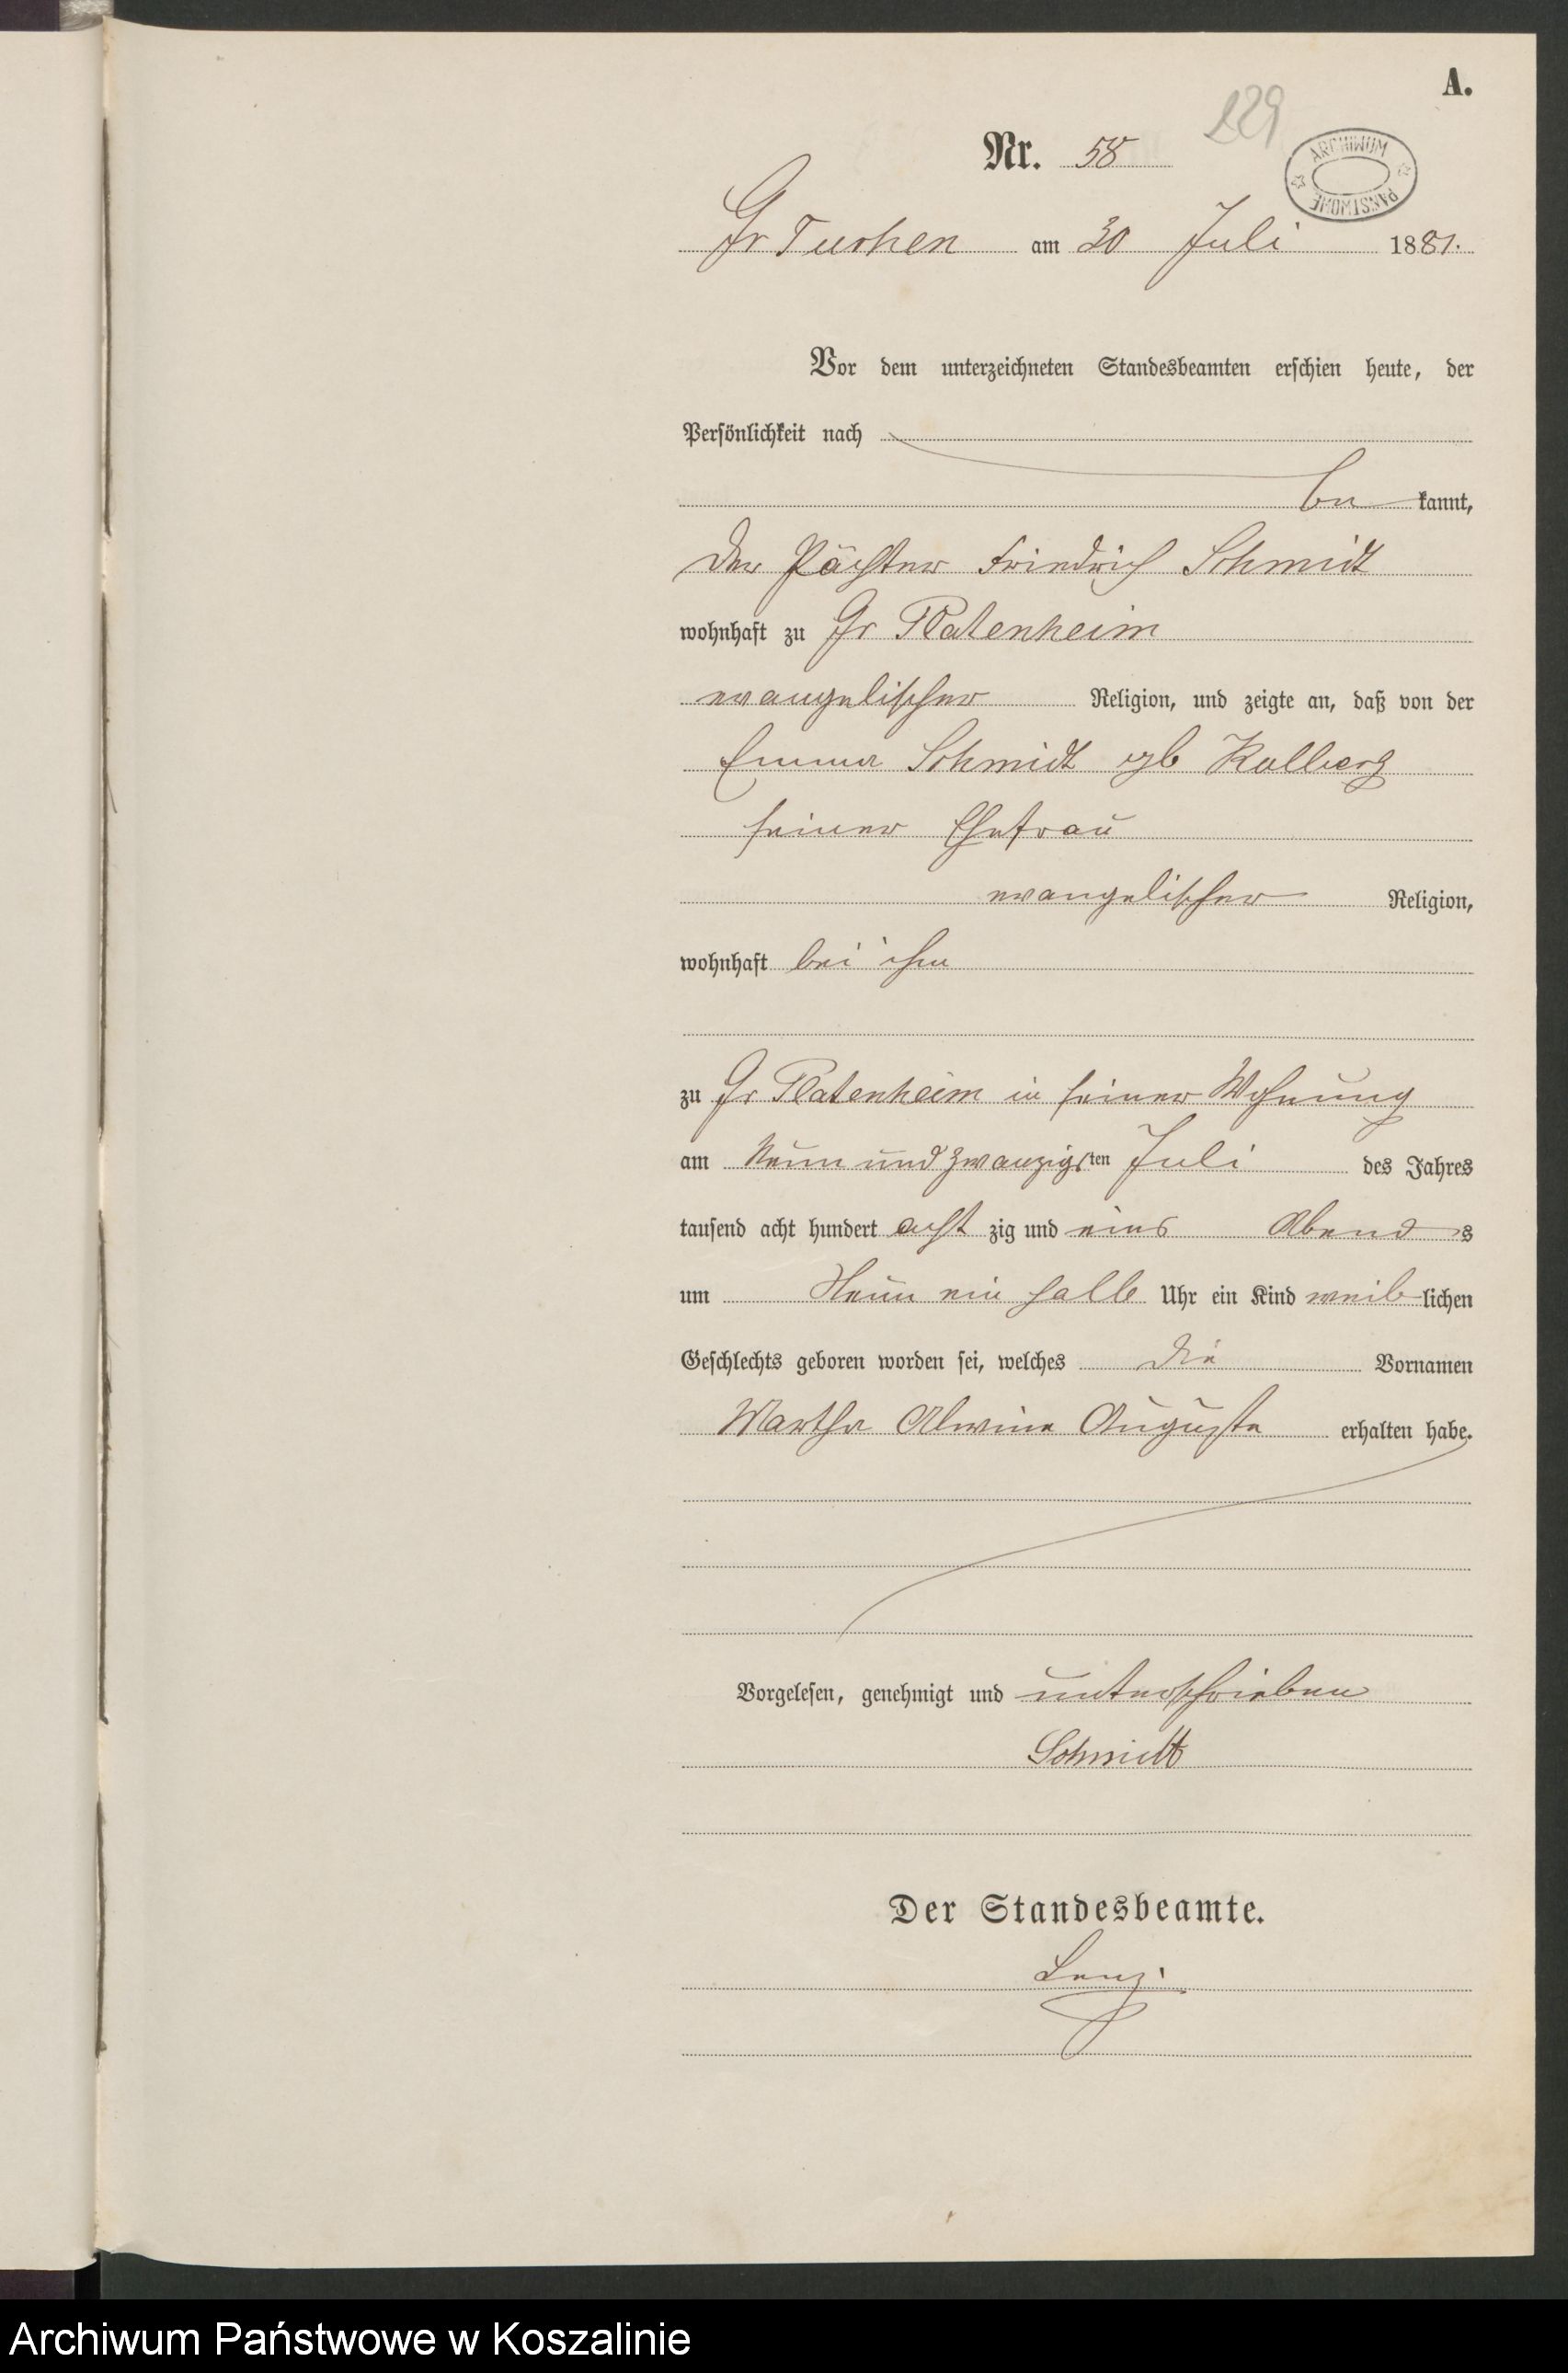 A.
229
Nr. 58
ARCHIWUM PAŃSTWOWE
Gr Tuchen am 30 Juli 1881.
Vor dem unterzeichneten Standesbeamten erschien heute, der
Persönlichkeit nach
be kannt,
der Pächter Friedrich Schmidt
wohnhaft zu Gr Platenheim
evangelischer Religion, und zeigte an, daß von der
Emma Schmidt geb Kollberg
seiner Ehefrau
evangelischer Religion,
wohnhaft bei ihm
zu Gr Platenheim in seiner Wohnung
am Neun und zwanzigsten Juli des Jahres
tausend acht hundert acht zig und eins Abends
um Neun ein halb Uhr ein Kind weiblichen
Geschlechts geboren worden sei, welches die Vornamen
Martha Alwine Auguste erhalten habe.
Vorgelesen, genehmigt und unterschrieben
Schmidt
Der Standesbeamte.
Lenz.
Archiwum Państwowe w Koszalinie